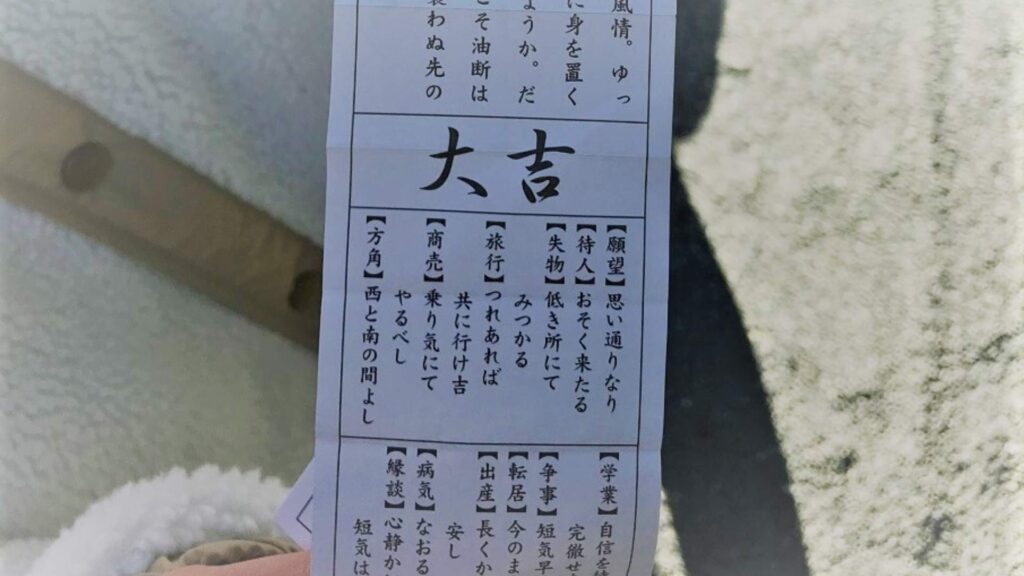 風情。ゆっ
に身を置く
ょうか。だ
こそ油断は
わぬ先の
大吉
【願望】思い通りなり
【待人】おそく来たる
【失物】低き所にて
みつかる
【旅行】つれあれば
共に行け吉
【商売】乗り気にて
やるべし
【方角】西と南の間よし
【学業】自信を
完徹せ
【争事】短気早
【転居】今のま
【出産】長くか
安し
【病気】なおる
【縁談】心静か
短気は